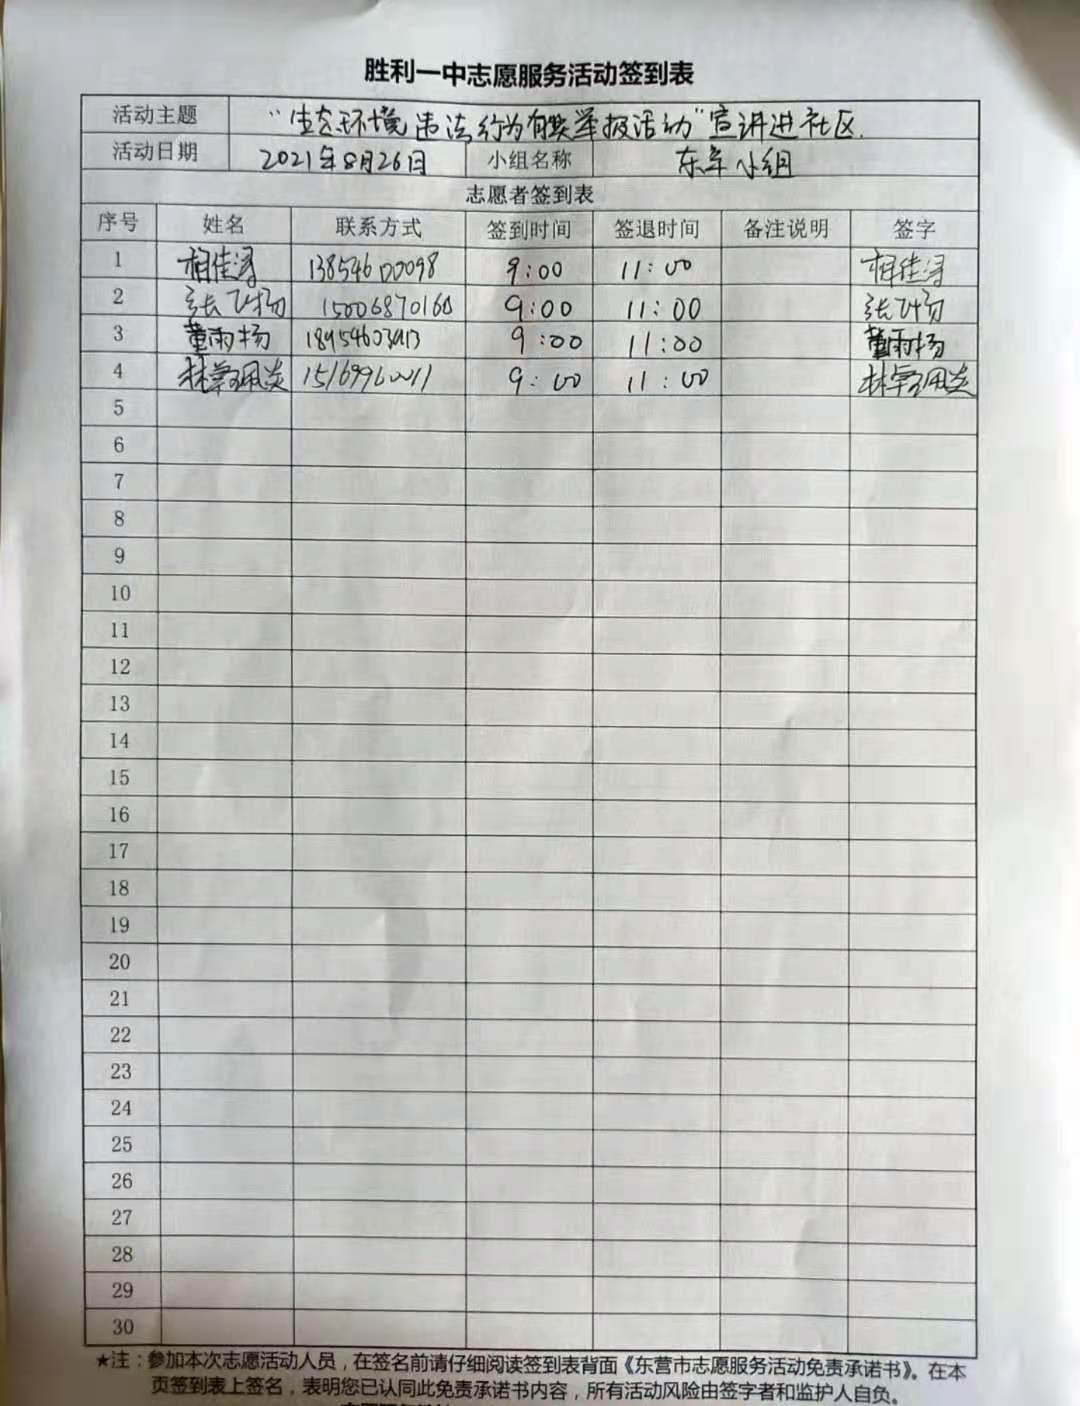 胜利一中志愿服务活动签到表
活动主题 "生态环境违法行为有奖举报活动"宣讲进社区.
活动日期 2021年8月26日 小组名称 东军小组
志愿者签到表
序号 姓名 联系方式 签到时间 签退时间 备注说明 签字
1 相佳 13854600098 9:00 11:00 相佳
2 张飞扬 15006870160 9:00 11:00 张飞扬
3 董雨杨 9:00 11:00 董雨杨
4 林 9:00 11:00 林
5
6
7
8
9
10
11
12
13
14
15
16
17
18
19
20
21
22
23
24
25
26
27
28
29
30
★注：参加本次志愿活动人员，在签名前请仔细阅读签到表背面《东营市志愿服务活动免责承诺书》。在本
页签到表上签名，表明您已认同此免责承诺书内容，所有活动风险由签字者和监护人自负。